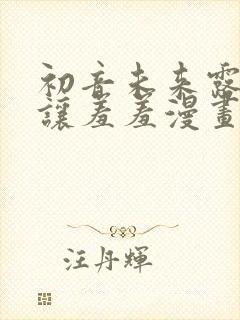 初音未来露
讓羞羞漫畫
汪丹輝